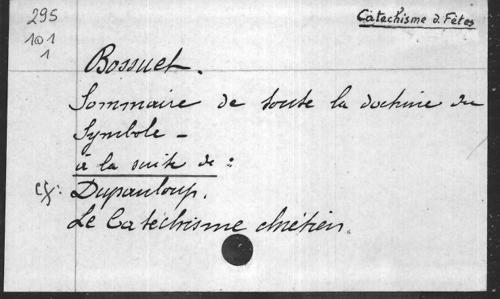 295
101
1
Catéchisme d. Fêtes
Bossuet.
Sommaire de toute la doctrine du
Symbole –
à la suite de :
cf: Dupanloup.
Le Catéchisme chrétien.